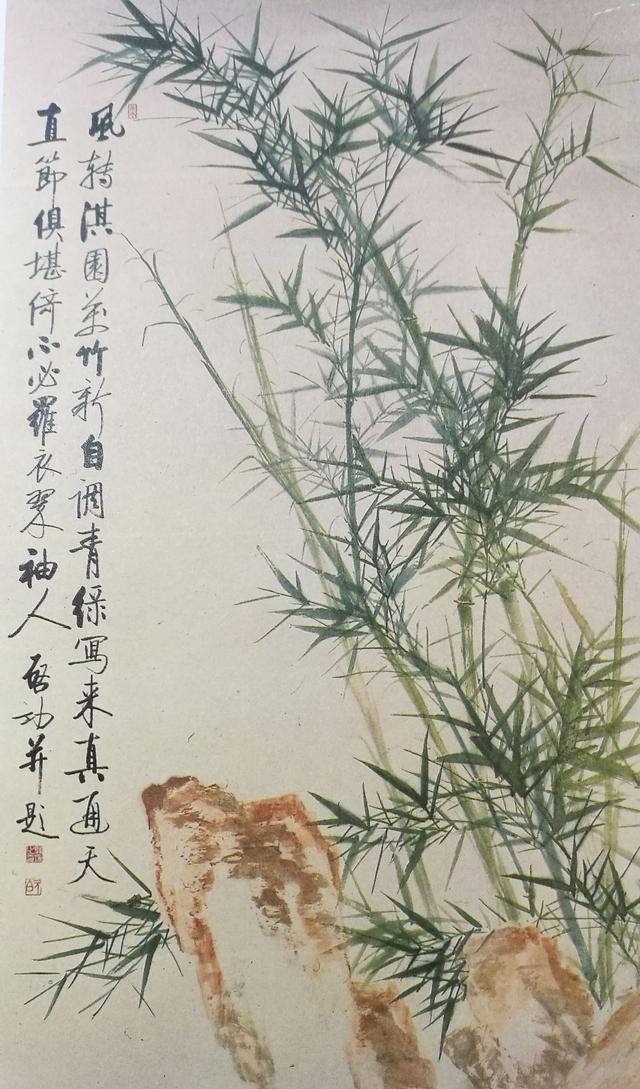 風轉淇園萬竹新自調青綠寫来真通天
直節俱堪倚不必羅衣翠袖人 啓功并題